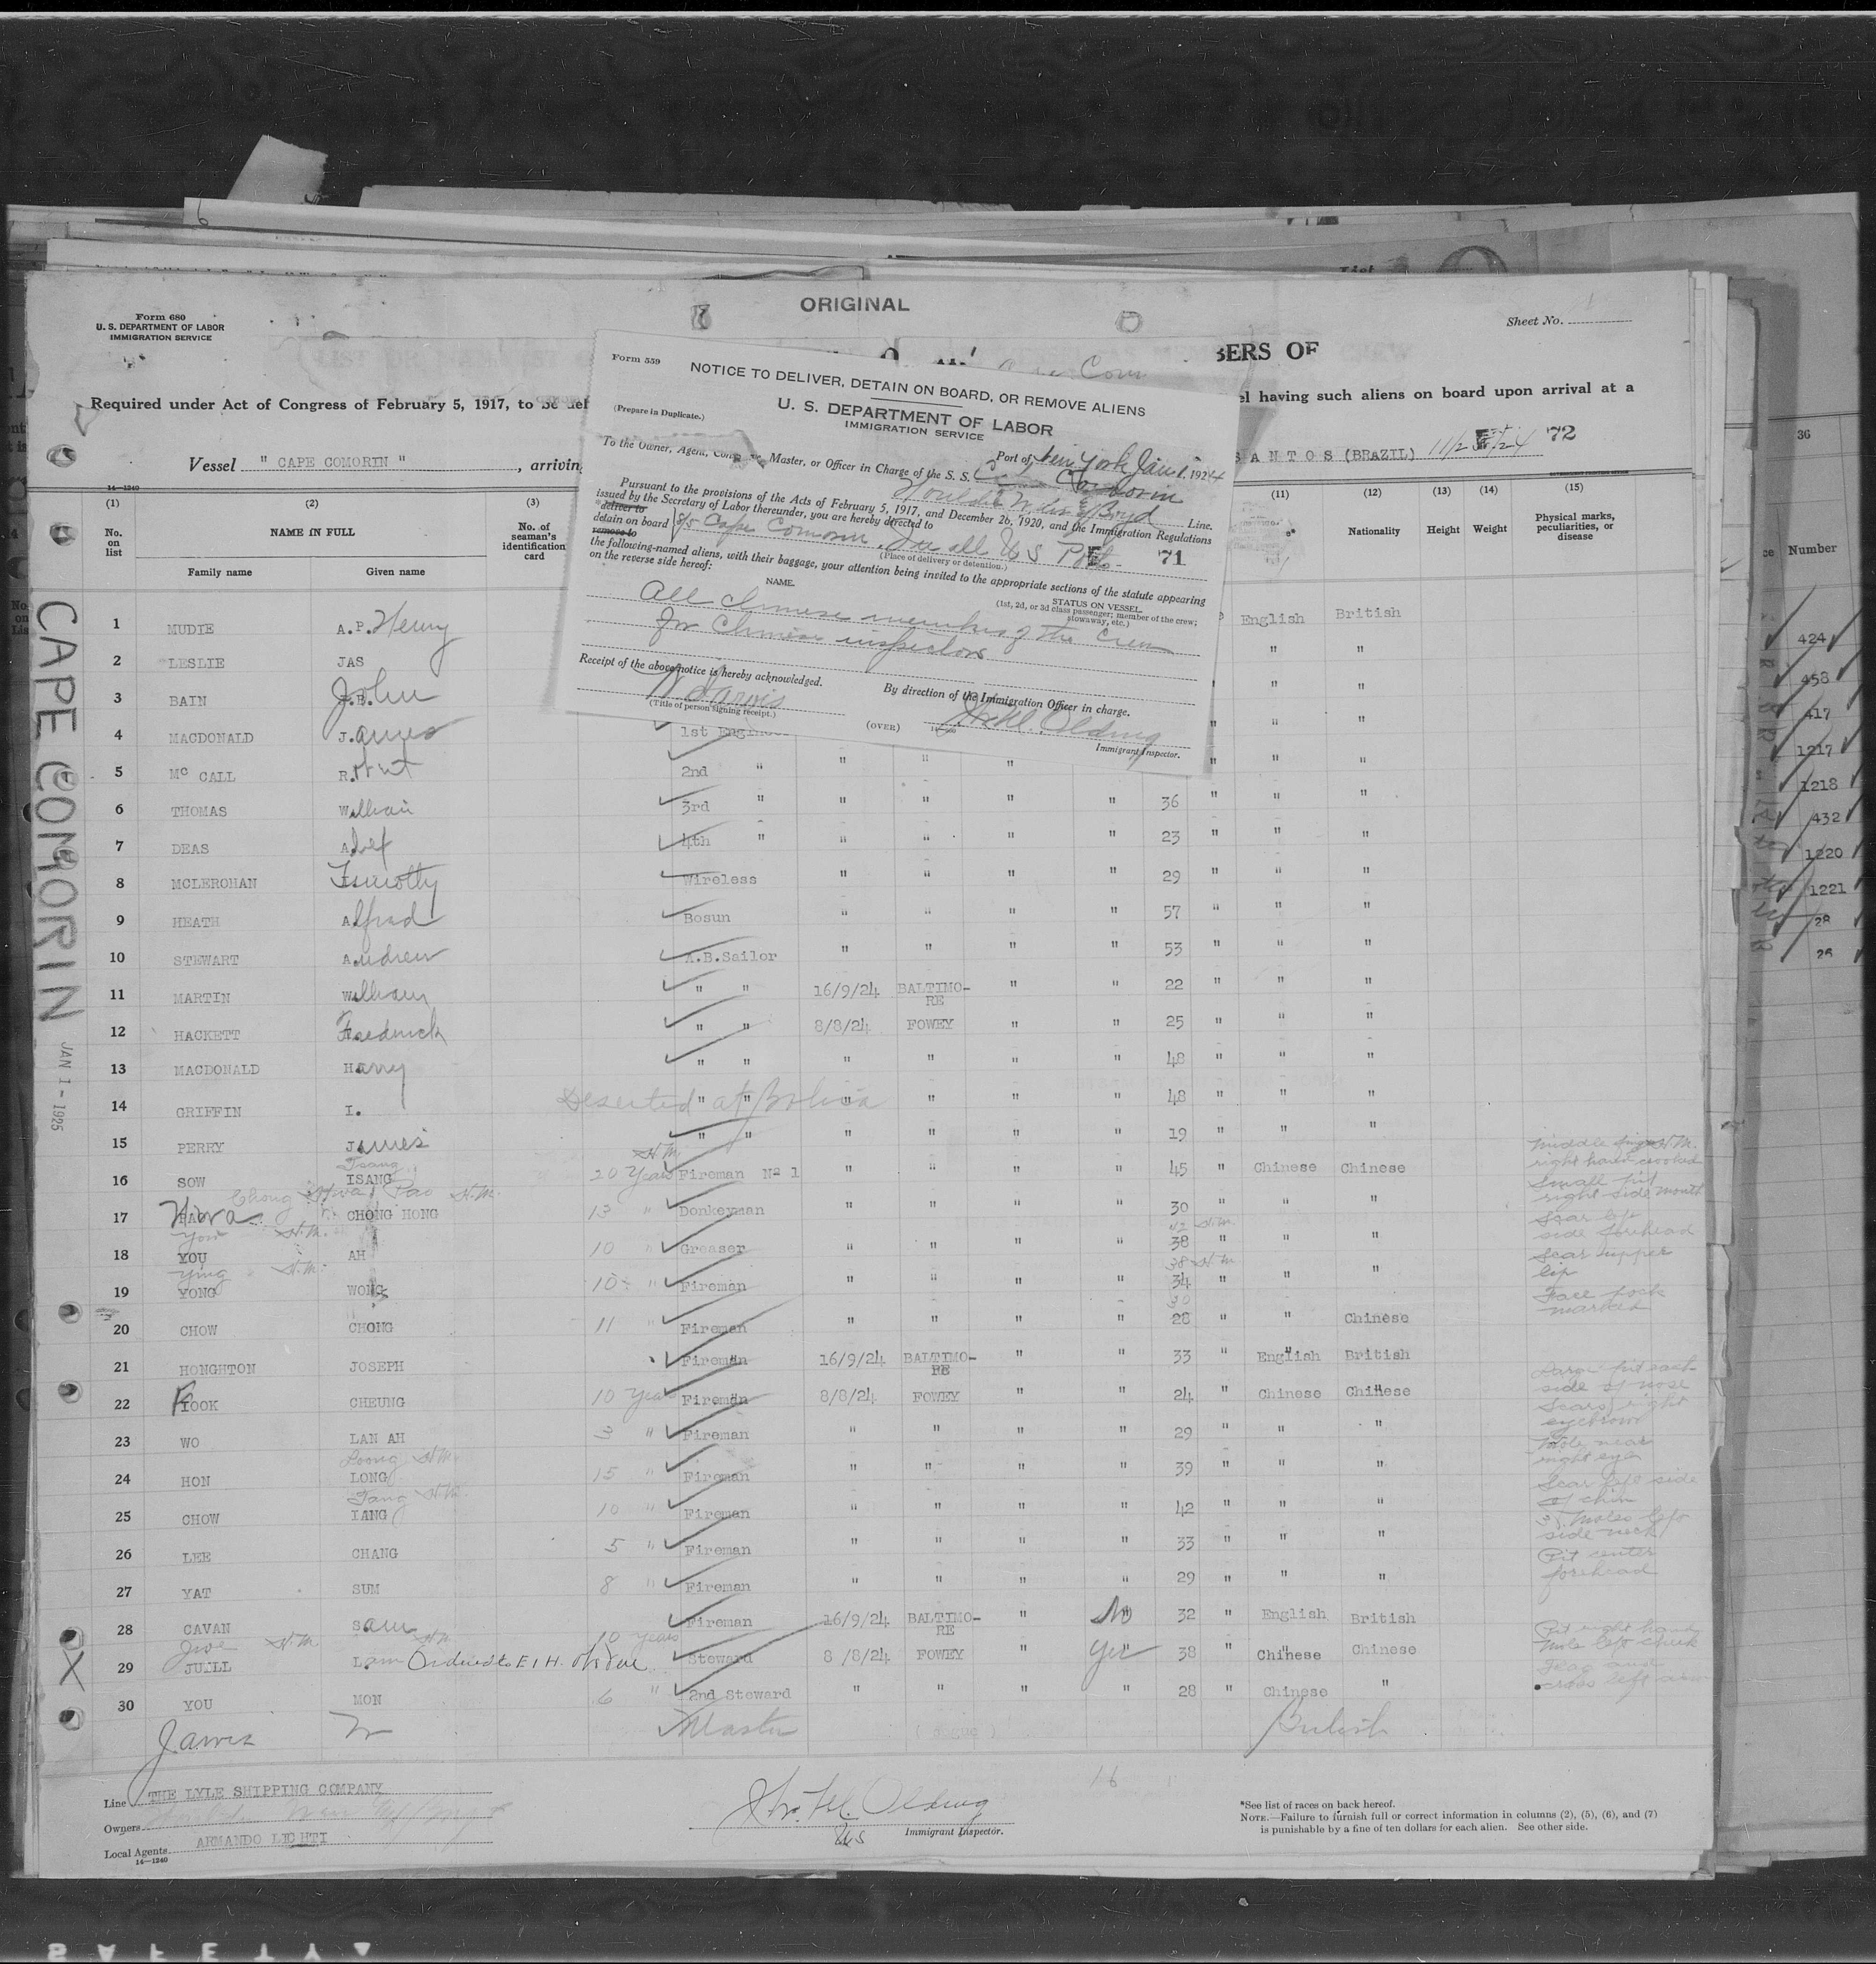 ORIGINAL
Form 680
U. S. DEPARTMENT OF LABOR
IMMIGRATION SERVICE
Sheet No.
BERS OF
Required under Act of Congress of February 5, 1917, to be del
el having such aliens on board upon arrival at a
Vessel " CAPE COMORIN " , arriving
SANTOS (BRAZIL)
72
14—1240
Form 559
NOTICE TO DELIVER, DETAIN ON BOARD, OR REMOVE ALIENS
(Prepare in Duplicate.)
U. S. DEPARTMENT OF LABOR
IMMIGRATION SERVICE
Port of New York Jan 1, 1924
To the Owner, Agent, Master, or Officer in Charge of the S. S. Cape Comorin
Boyd Line.
Pursuant to the provisions of the Acts of February 5, 1917, and December 26, 1920, and the Immigration Regulations
issued by the Secretary of Labor thereunder, you are hereby directed to
deliver to
detain on board S/S Cape Comorin all US Ports 71
remove to
(Place of delivery or detention.)
the following-named aliens, with their baggage, your attention being invited to the appropriate sections of the statute appearing
on the reverse side hereof:
NAME.
STATUS ON VESSEL
(1st, 2d, or 3d class passenger; member of the crew; stowaway, etc.)
All chinese members of the crew
for Chinese inspection
Receipt of the above notice is hereby acknowledged.
W Jarvis
(Title of person signing receipt.)
(OVER)
By direction of the Immigration Officer in charge.
Olding
Immigrant Inspector.
(1) (2) (3) (11) (12) (13) (14) (15)
No. on list
NAME IN FULL
Family name Given name
No. of seaman's identification card
Nationality Height Weight
Physical marks, peculiarities, or disease
CAPE COMORIN
JAN 1 - 1925
1 MUDIE A.P. Henry English British
2 LESLIE JAS " "
3 BAIN J.B. John " "
4 MACDONALD James 1st " " "
5 Mc CALL R. 2nd " " " " " " "
6 THOMAS William 3rd " " " " " 36 " " "
7 DEAS Alex 4th " " " " " 23 " " "
8 MCLEROHAN Timothy Wireless " " " " 29 " " "
9 HEATH Alfred Bosun " " " " 57 " " "
10 STEWART Andrew A.B.Sailor " " " " 53 " " "
11 MARTIN William " " 16/9/24 BALTIMO-RE " " 22 " " "
12 HACKETT Frederick " " 8/8/24 FOWEY " " 25 " " "
13 MACDONALD Harry " " " " " " 48 " " "
14 GRIFFIN I. Deserted at " " " " " " 48 " " "
15 PERRY James " " " " " " 19 " " "
16 SOW ISANG Tsang 20 Years H.M. Fireman No 1 " " " " 45 " Chinese Chinese Middle finger H.M. right hand crooked
17 Hwa CHONG HONG Chong Hwa Pao H.M. 13 " Donkeyman " " " " 30 " " " Small pit right side mouth
18 YOU AH You H.M. 10 " Greaser " " " " 38 42 H.M. " " " Scar left side forehead
19 YONG WONG Ying H.M. 10 " Fireman " " " " 34 38 H.M. " " " Scar upper lip
20 CHOW CHONG 11 " Fireman " " " " 28 30 " " Chinese Face pock marked
21 HONGHTON JOSEPH Fireman 16/9/24 BALTIMO-RE " " 33 " English British
22 FOOK CHEUNG 10 Years Fireman 8/8/24 FOWEY " " 24 " Chinese Chinese pit each side of nose
23 WO LAN AH 3 " Fireman " " " " 29 " " " Scars right eyebrow
24 HON LONG Loong H.M. 15 " Fireman " " " " 39 " " " Mole near right eye
25 CHOW IANG Tang H.M. 10 " Fireman " " " " 42 " " " Scar left side of chin
26 LEE CHANG 5 " Fireman " " " " 33 " " " 3 Moles left side neck
27 YAT SUM 8 " Fireman " " " " 29 " " " Pit center forehead
28 CAVAN Sam Fireman 16/9/24 BALTIMO-RE " No 32 " English British
29 JUELL Lam Ordered to E I H. 10 Years Steward 8/8/24 FOWEY " Yes 38 " Chinese Chinese Pit right hand Mole left cheek
30 YOU MON 6 " 2nd Steward " " " " 28 " Chinese "
Jarvis W Master British
Line THE LYLE SHIPPING COMPANY
Owners
Local Agents ARMANDO LICHTI
14—1240
Olding
US Immigrant Inspector.
16
*See list of races on back hereof.
NOTE.—Failure to furnish full or correct information in columns (2), (5), (6), and (7)
is punishable by a fine of ten dollars for each alien. See other side.
36
Number
424
458
417
1217
1218
432
1220
1221
28
26
SAFETY